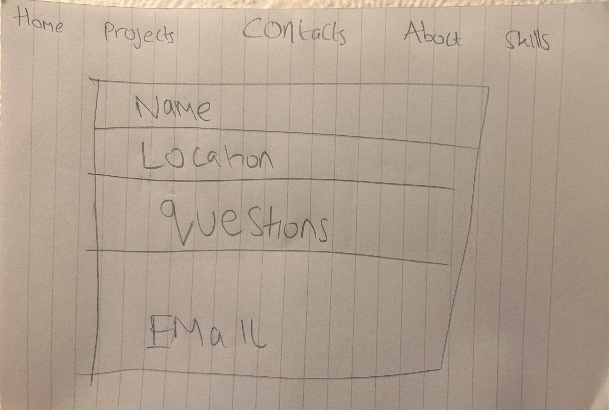 Home Projects Contacts About Skills
Name
Location
Questions
EMail